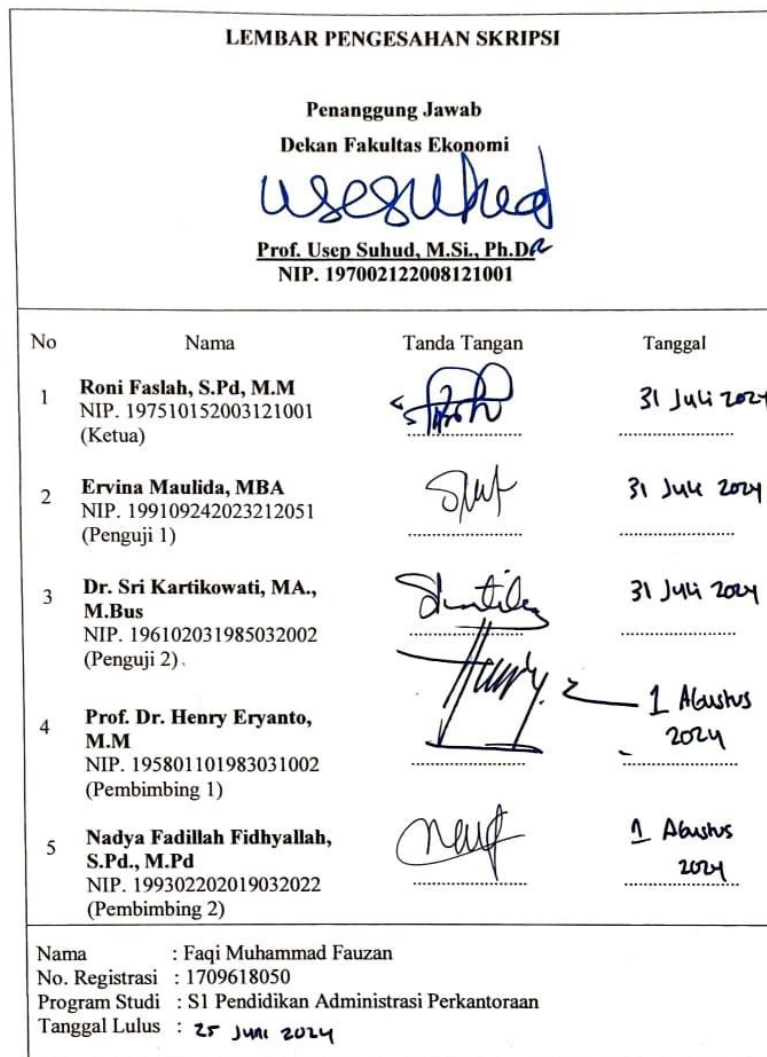 LEMBAR PENGESAHAN SKRIPSI
Penanggung Jawab
Dekan Fakultas Ekonomi
Prof. Usep Suhud, M.Si., Ph.D
NIP. 197002122008121001
No Nama Tanda Tangan Tanggal
1 Roni Faslah, S.Pd, M.M 31 Juli 2024
NIP. 197510152003121001
(Ketua)
2 Ervina Maulida, MBA 31 Juli 2024
NIP. 199109242023212051
(Penguji 1)
3 Dr. Sri Kartikowati, MA., 31 Juli 2024
M.Bus
NIP. 196102031985032002
(Penguji 2)
4 Prof. Dr. Henry Eryanto, 1 Agustus
M.M 2024
NIP. 195801101983031002
(Pembimbing 1)
5 Nadya Fadillah Fidhyallah, 1 Agustus
S.Pd., M.Pd 2024
NIP. 199302202019032022
(Pembimbing 2)
Nama : Faqi Muhammad Fauzan
No. Registrasi : 1709618050
Program Studi : S1 Pendidikan Administrasi Perkantoraan
Tanggal Lulus : 25 Juni 2024